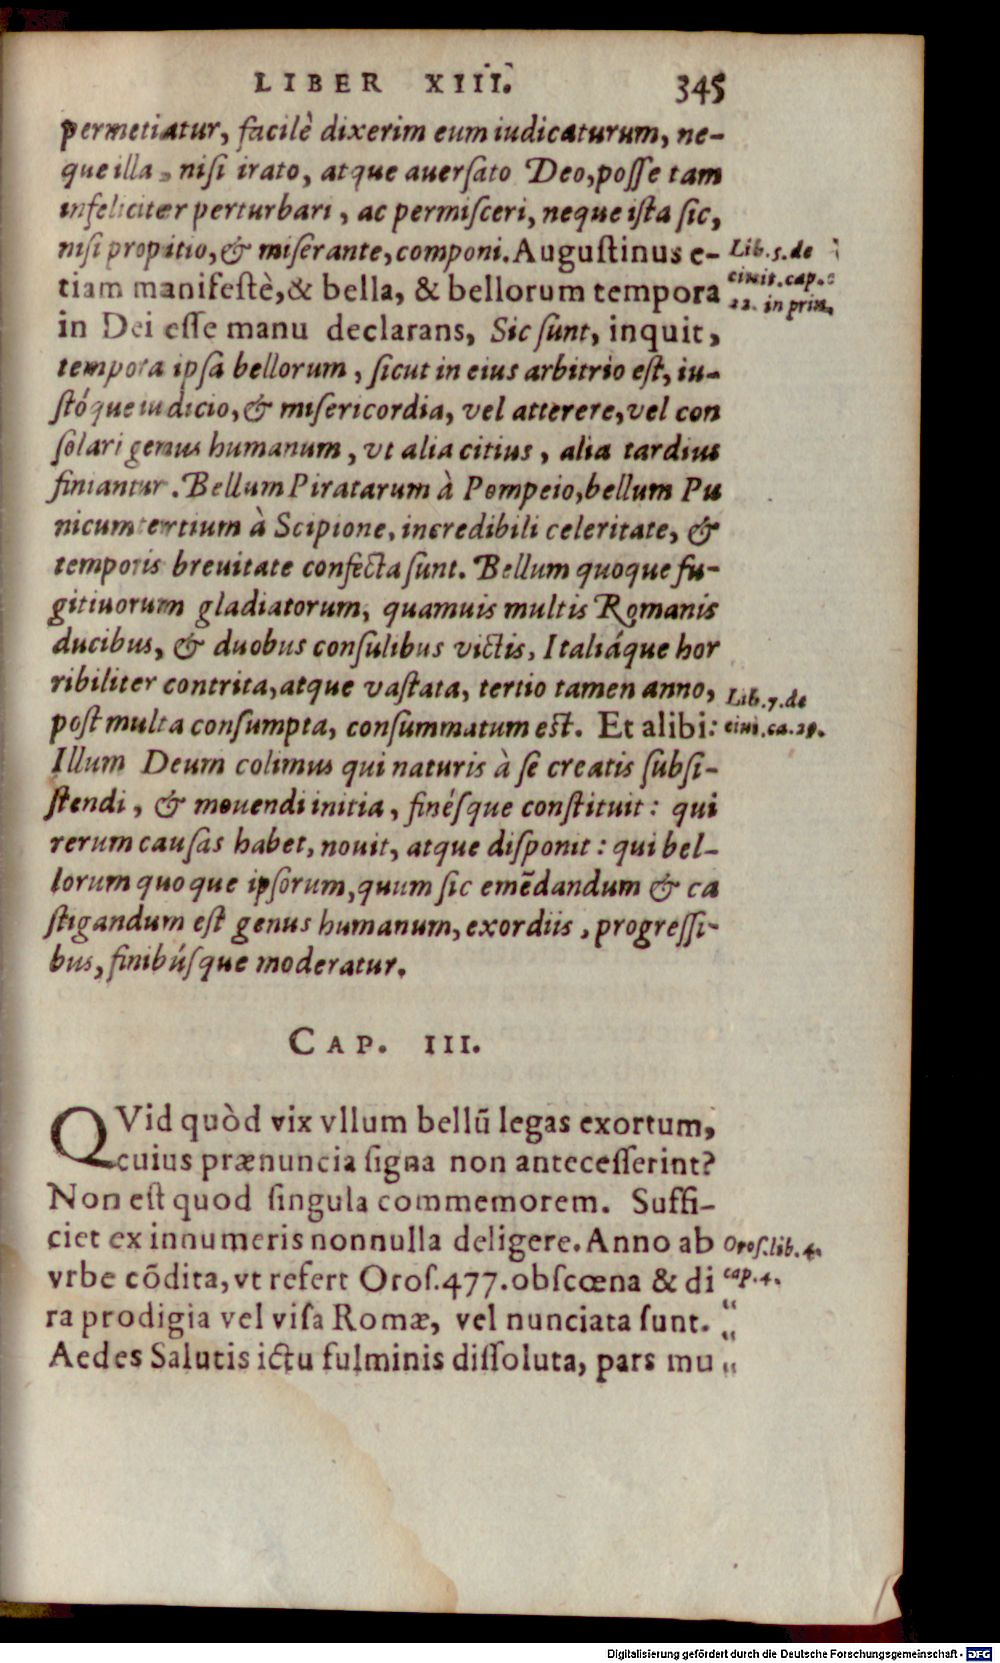 LIBER XIII. 345
permetiatur, facilè dixerim eum iudicaturum, ne-
que illa, nisi irato, atque auersato Deo, posse tam
infeliciter perturbari, ac permisceri, neque ista sic,
nisi propitio, & miserante, componi. Augustinus e-
tiam manifestè, & bella, & bellorum tempora
in Dei esse manu declarans, Sic sunt, inquit,
tempora ipsa bellorum, sicut in eius arbitrio est, iu-
stóque iudicio, & misericordia, vel atterere, vel con
solari genus humanum, vt alia citius, alia tardius
finiantur. Bellum Piratarum à Pompeio, bellum Pu
nicum tertium à Scipione, incredibili celeritate, &
temporis breuitate confecta sunt. Bellum quoque fu-
gitiuorum gladiatorum, quamuis multis Romanis
ducibus, & duobus consulibus victis, Italiáque hor
ribiliter contrita, atque vastata, tertio tamen anno,
post multa consumpta, consummatum est. Et alibi:
Illum Deum colimus qui naturis à se creatis subsi-
stendi, & mouendi initia, finésque constituit: qui
rerum causas habet, nouit, atque disponit: qui bel-
lorum quoque ipsorum, quum sic emēdandum & ca
stigandum est genus humanum, exordiis, progressi-
bus, finibúsque moderatur.
Lib. 5. de
ciuit. cap.
22. in prin.
Lib. 7. de
ciui. ca. 29.
CAP. III.
QVid quòd vix vllum bellū legas exortum,
cuius prænuncia signa non antecesserint?
Non est quod singula commemorem. Suffi-
ciet ex innumeris nonnulla deligere. Anno ab
vrbe cōdita, vt refert Oros. 477. obscœna & di
ra prodigia vel visa Romæ, vel nunciata sunt. "
Aedes Salutis ictu fulminis dissoluta, pars mu "
Oros. lib. 4.
cap. 4.
"
Digitalisierung gefördert durch die Deutsche Forschungsgemeinschaft - DFG